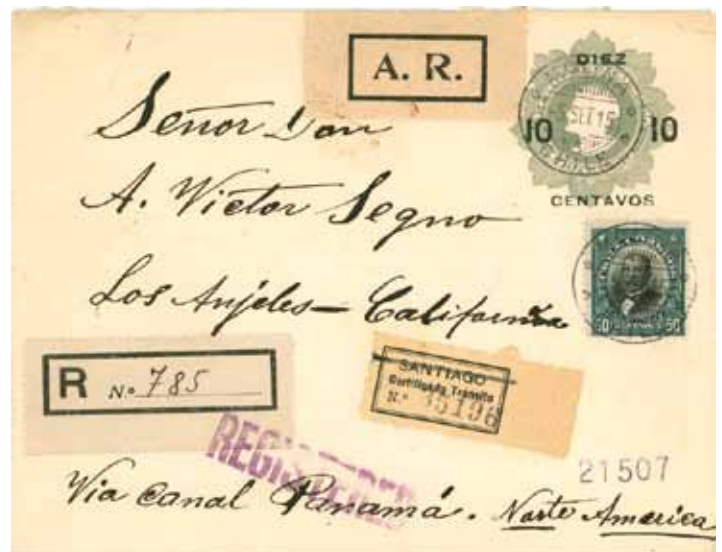 A. R.
DIEZ
10 10
CENTAVOS
CHILE
SET 15
Señor Don
A. Victor Segno
Los Anjeles - California
50 50
R No. 785
SANTIAGO
Certificado Tránsito
N.°
REGISTERED
21507
Via Canal Panamá. Norte America